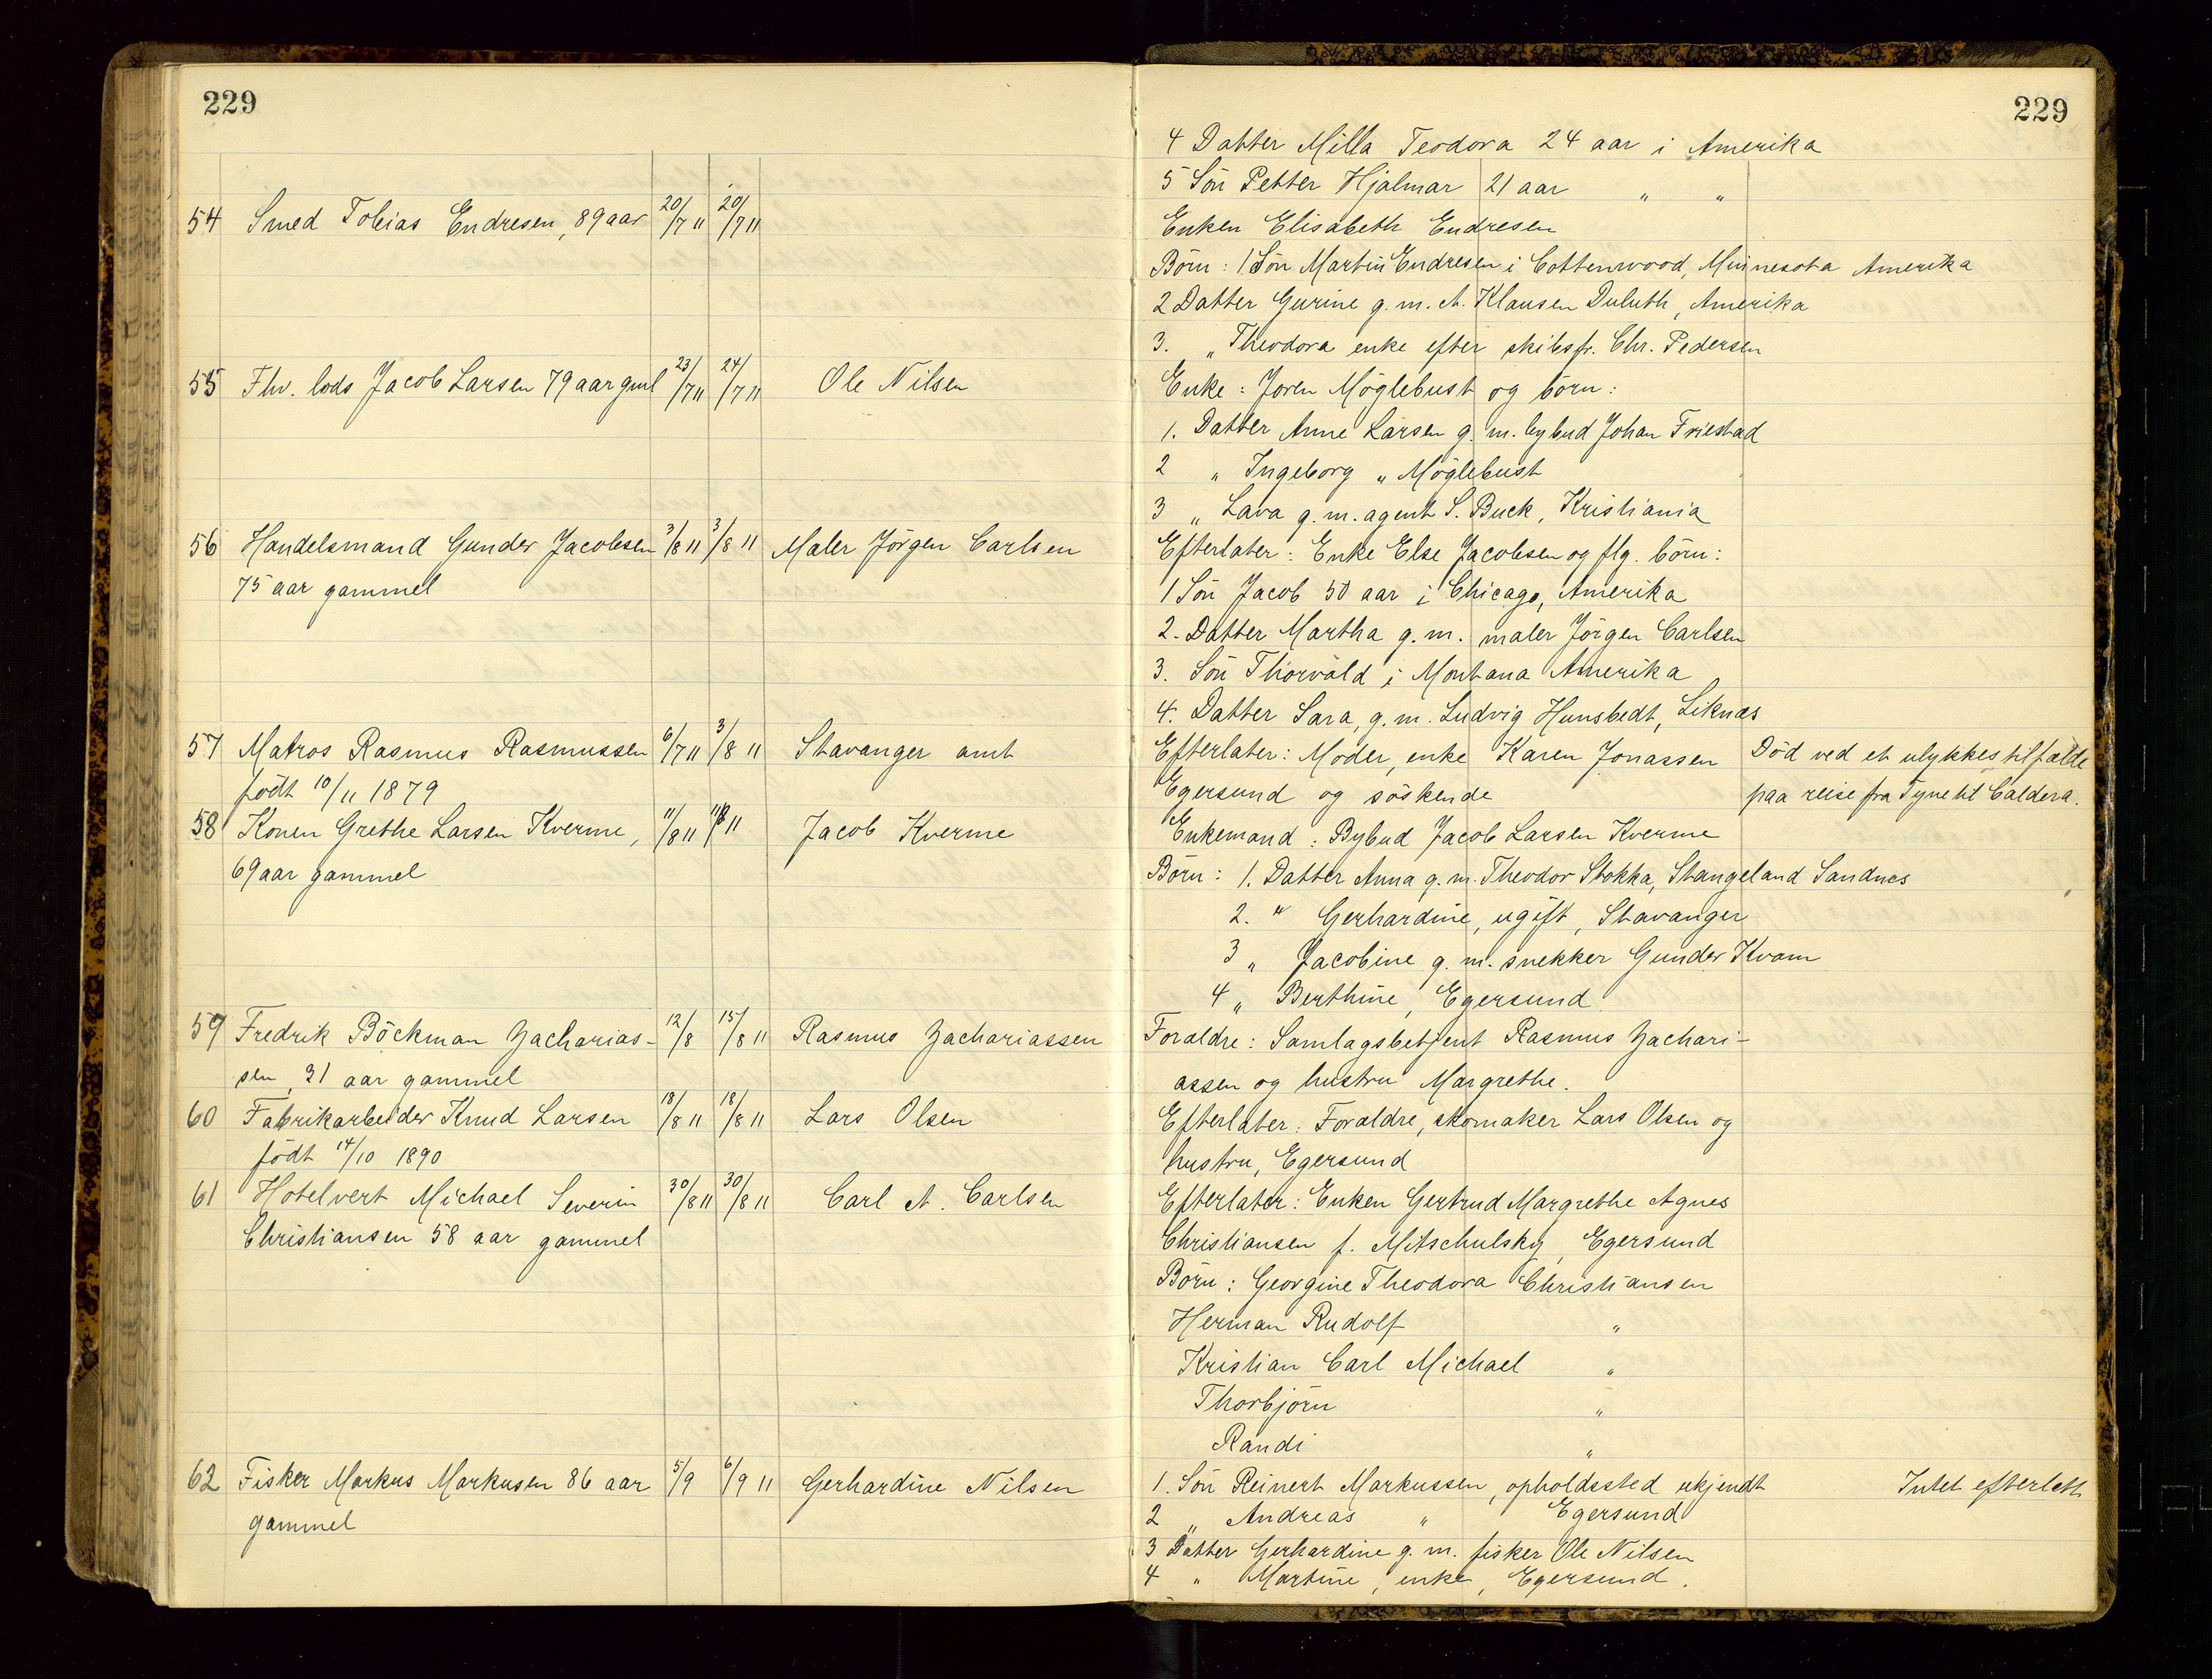 229
54 Smed Tobias Endresen, 89 aar 20/7 11 20/7 11
55 Fhv. lods Jacob Larsen 79 aar gml 23/7 11 24/7 11 Ole Nilsen
56 Handelsmand Gunder Jacobsen 3/8 11 3/8 11 Maler Jörgen Carlsen
75 aar gammel
57 Matros Rasmus Rasmussen 6/7 11 3/8 11 Stavanger amt
födt 10/11 1879
58 Konen Grethe Larsen Kverme, 11/8 11 11/8 11 Jacob Kverme
69 aar gammel
59 Fredrik Böckman Zacharias- 12/8 15/8 11 Rasmus Zachariassen
sen, 31 aar gammel
60 Fabrikarbeider Knud Larsen 18/8 11 18/8 11 Lars Olsen
födt 14/10 1890
61 Hotelvert Michael Severin 30/8 11 30/8 11 Carl A. Carlsen
Christiansen 58 aar gammel
62 Fisker Markus Markusen 86 aar 5/9 6/9 11 Gerhardine Nilsen
gammel
229
4 Datter Milla Teodora 24 aar i Amerika
5 Sön Petter Hjalmar 21 aar " "
Enken Elisabeth Endresen
Börn: 1 Sön Martin Endresen i Cottenwood, Minnesota Amerika
2 Datter Gurine g. m. A. Klausen Duluth, Amerika
3. " Theodora enke efter skibsfr. Chr. Pedersen
Enke: Joren Möglebust og börn:
1. Datter Anne Larsen g. m. bybud Johan Friestad
2 " Ingeborg " Möglebust
3 " Lava g. m. agent S. Buck, Kristiania
Efterlater: Enke Else Jacobsen og flg. börn:
1 Sön Jacob 50 aar i Chicago, Amerika
2. Datter Martha g. m. maler Jörgen Carlsen
3. Sön Thorvald i Montana Amerika
4. Datter Sara, g. m. Ludvig Hunsbedt, Liknæs
Efterlater: Moder, enke Karen Jonassen Död ved et ulykkestilfælde
Egersund og söskende paa reise fra Tyne til Caldera.
Enkemand: Bybud Jacob Larsen Kverme
Börn: 1. Datter Anna g. m. Theodor Stokka, Stangeland Sandnes
2. " Gerhardine, ugift, Stavanger
3 " Jacobine g. m. snekker Gunder Kvam
4 " Berthine, Egersund
Forældre: Samlagsbetjent Rasmus Zachari-
assen og hustru Margrethe.
Efterlater: Forældre, skomaker Lars Olsen og
hustru, Egersund
Efterlater: Enken Gertrud Margrethe Agnes
Christiansen f. Mitschulsky, Egersund
Börn: Georgine Theodora Christiansen
Herman Rudolf "
Kristian Carl Michael "
Thorbjörn "
Randi "
1. Sön Reinert Markussen, opholdssted ukjendt Intet efterlatt
2 " Andreas " Egersund
3 Datter Gerhardine g. m. fisker Ole Nilsen
4 " Martine, enke, Egersund.